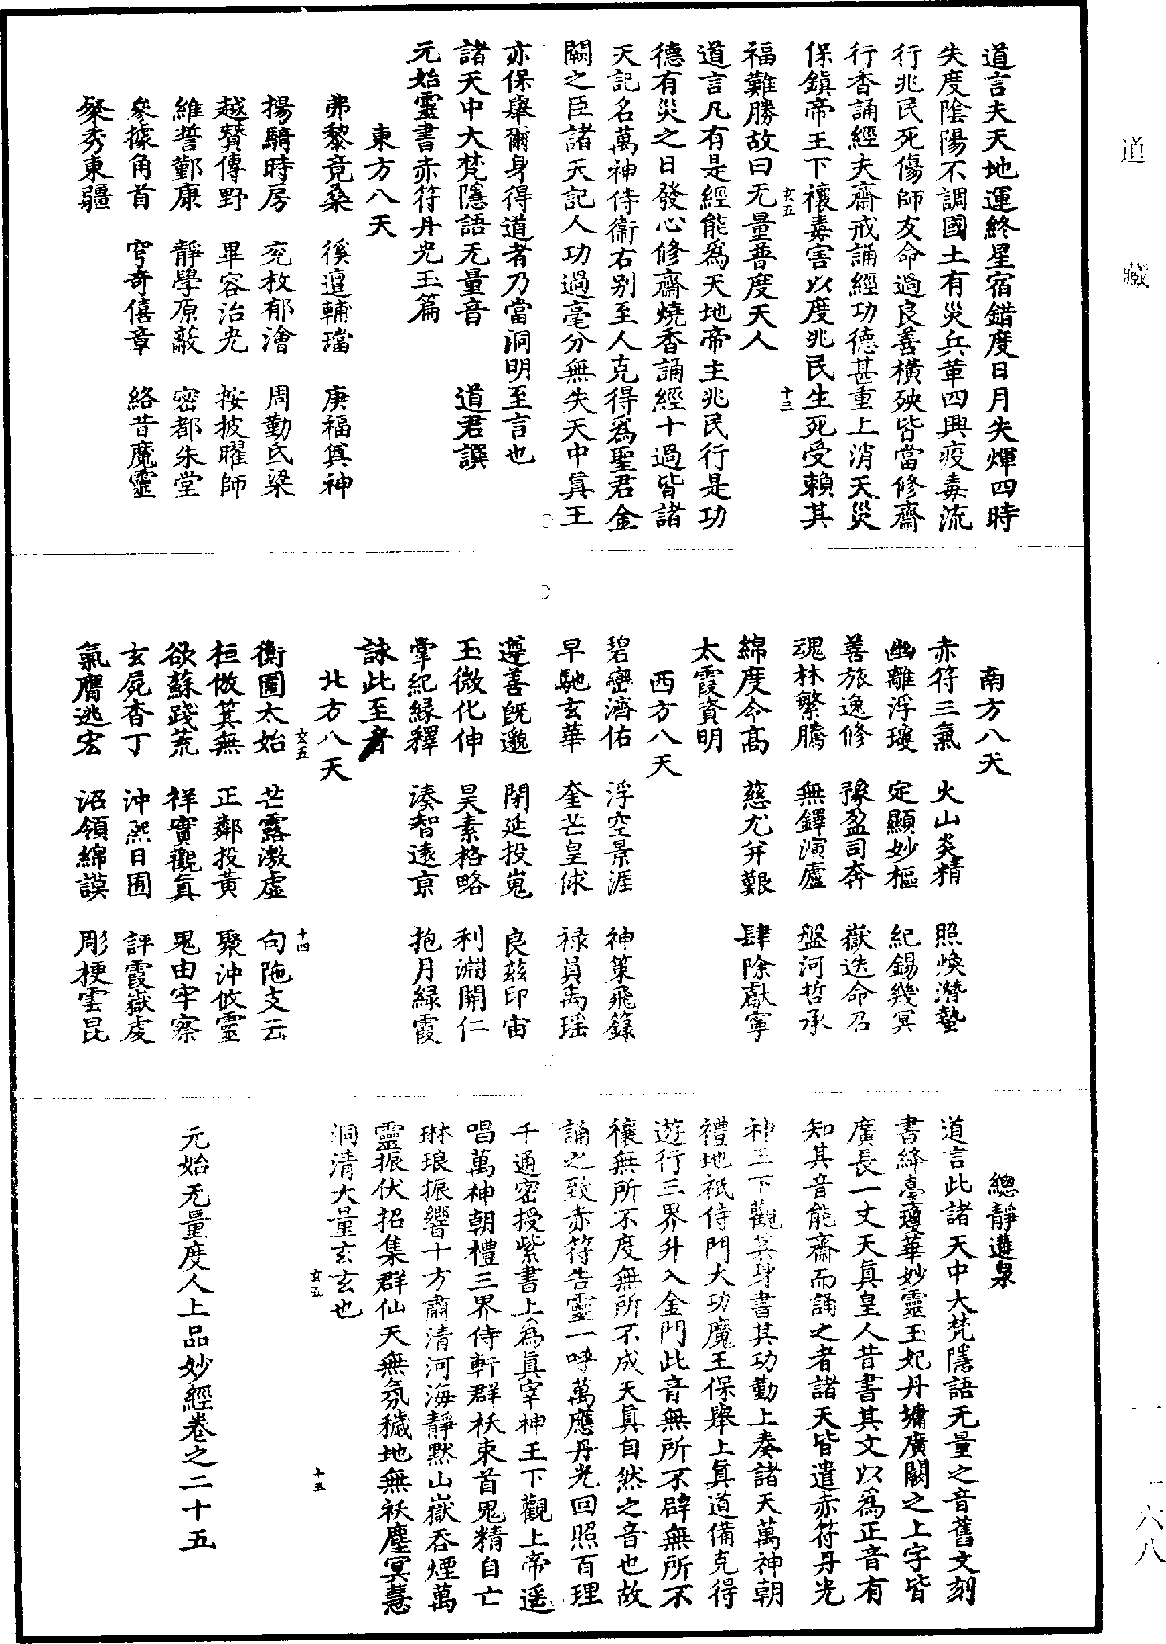 道言夫天地運終星宿錯度日月失煇四時
失度陰陽不調國土有災兵革四興疫毒流
行兆民死傷師友命過良善橫殃皆當修齋
行香誦經夫齋戒誦經功德甚重上消天災
保鎮帝王下禳毒害以度兆民生死受賴其
福難勝故曰无量普度天人
玄五
十三
道言凡有是經能爲天地帝主兆民行是功
德有災之日發心修齋燒香誦經十過皆諸
天記名萬神侍衞右别至人克得爲聖君金
闕之臣諸天記人功過毫分無失天中眞王
亦保舉爾身得道者乃當洞明至言也
諸天中大梵隱語无量音 道君譔
元始靈書赤符丹光玉篇
東方八天
弗黎竟桑 徯邅輔璫 庚福眞神
揚騎時房 兖枚郁澮 周勤氐梁
越贊傳野 畢容治光 按披曜師
維誓鄞康 靜學原敲 密都朱堂
參據角首 穹奇僖章 絡昔魔靈
粲秀東疆
南方八天
赤符三氣 火山炎精 照煥潛蟄
幽離浮瓊 定顯妙樞 紀錫幾冥
善旅逸修 豫盈司奔 嶽迭命召
魂林繁騰 無鐸演廬 盤河哲承
綿度今高 慈尤弁艱 肆除獻寧
太霞資明
西方八天
碧巒濟佑 浮空景涯 神策飛錄
早馳玄華 奎芒皇俅 祿員禹瑶
遵善旣邈 閉延投嵬 良兹印宙
玉微化伸 昊素格略 利淵開仁
掌紀緣釋 湊智遠京 抱月緑霞
詠此至音
北方八天
玄五
十四
衡圖太始 芒露激虛 句陁支云
桓倣箕無 正鄰投黃 聚沖攸靈
欲蘇踐荒 祥實觀眞 鬼由牢察
玄晃杳丁 沖熙日囿 評霞嶽虔
氣膺逃宏 沼領綿謨 彫梗雲昆
總靜遊泉
道言此諸天中大梵隱語无量之音舊文刻
書絳臺瓊華妙靈玉妃丹墉廣闕之上字皆
廣長一丈天眞皇人昔書其文以爲正音有
知其音能齋而誦之者諸天皆遣赤符丹光
神王下觀其身書其功勤上奏諸天萬神朝
禮地祇侍門大功魔王保舉上眞道備克得
遊行三界升入金門此音無所不辟無所不
禳無所不度無所不成天眞自然之音也故
誦之致赤符告靈一呼萬應丹光回照百理
千通密授紫書上爲眞宰神王下觀上帝遥
唱萬神朝禮三界侍軒群袄束首鬼精自亡
琳琅振響十方肅清河海靜默山嶽吞煙萬
靈振伏招集群仙天無氛穢地無袄塵冥慧
洞清大量玄玄也
玄五
十五
元始无量度人上品妙經卷之二十五
道藏
一——一六八